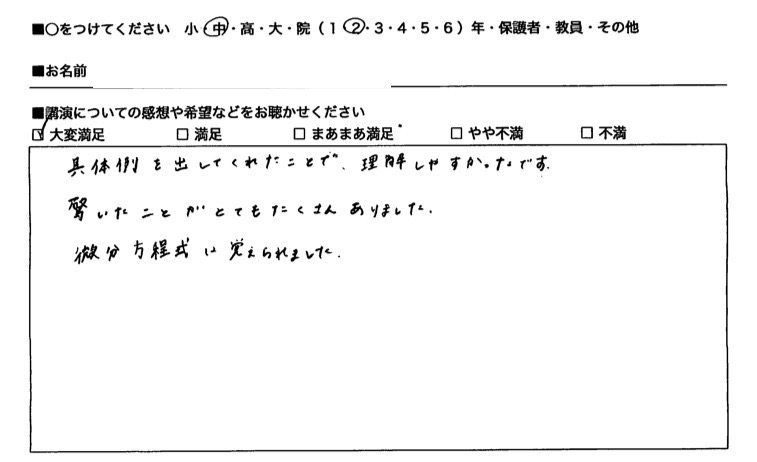 ■○をつけてください 小・中・高・大・院（1・2・3・4・5・6）年・保護者・教員・その他
■お名前
■講演についての感想や希望などをお聴かせください
☑大変満足 □満足 □まあまあ満足 □やや不満 □不満
具体例を出してくれたことで、理解しやすかったです。
驚いたことがとてもたくさんありました。
微分方程式は覚えられました。